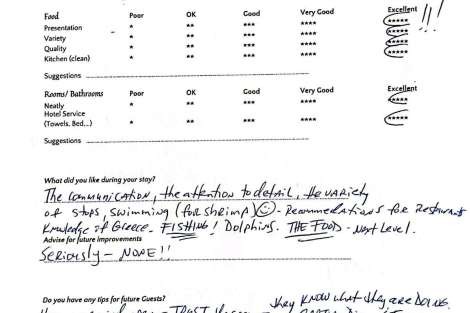 Food Poor OK Good Very Good Excellent
Presentation * ** *** **** ***** !!!
Variety * ** *** **** *****
Quality * ** *** **** *****
Kitchen (clean) * ** *** **** *****
Suggestions
Rooms/ Bathrooms Poor OK Good Very Good Excellent
Neatly * ** *** **** *****
Hotel Service
(Towels, Bed...) * ** *** **** *****
Suggestions
What did you like during your stay?
The communication, the attention to detail, the variety
of stops, swimming (for shrimp) ☺ - Recommendations for Restaurants
Knowledge of Greece. FISHING! Dolphins. THE FOOD - Next Level.
Advice for future improvements
SERIOUSLY - NONE!!
Do you have any tips for future Guests? they KNOW what they are DOING.
TRUST